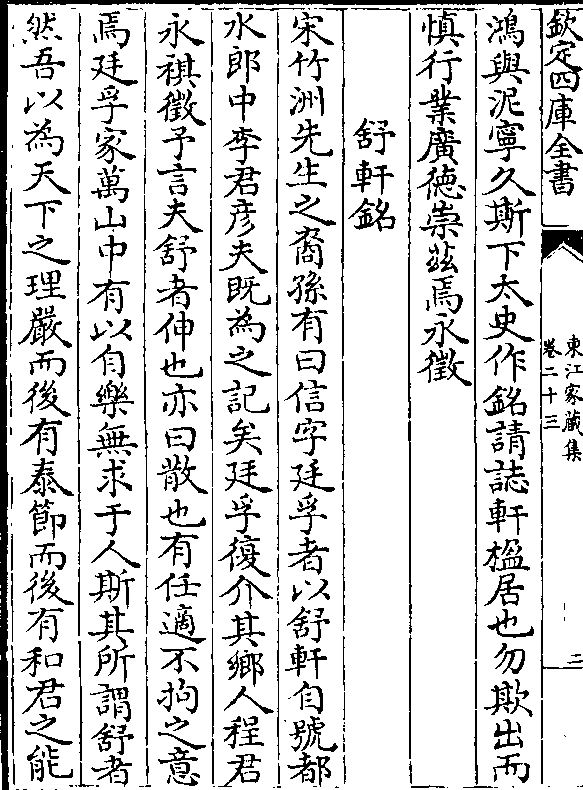 欽定四庫全書
東江家藏集
卷二十三
二
鴻與泥寧久斯下太史作銘請誌軒楹居也勿欺出而
慎行業廣德崇茲焉永徵
舒軒銘
宋竹洲先生之裔孫有曰信字廷孚者以舒軒自號都
水郎中李君彥夫既為之記矣廷孚復介其鄉人程君
永祺徵予言夫舒者伸也亦曰散也有任適不拘之意
焉廷孚家萬山中有以自樂無求于人斯其所謂舒者
然吾以為天下之理嚴而後有泰節而後有和君之能